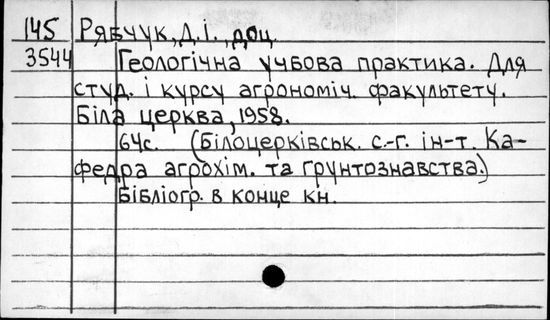 145 Рябчук, Д. І., доц.
3544 Геологічна учбова практика. Для
студ. і курсу агрономіч. факультету.
Біла церква, 1958.
64с. (Білоцерківськ. с.-г. ін-т. Ка-
федра агрохім. та ґрунтознавства.)
Бібліогр. в конце кн.